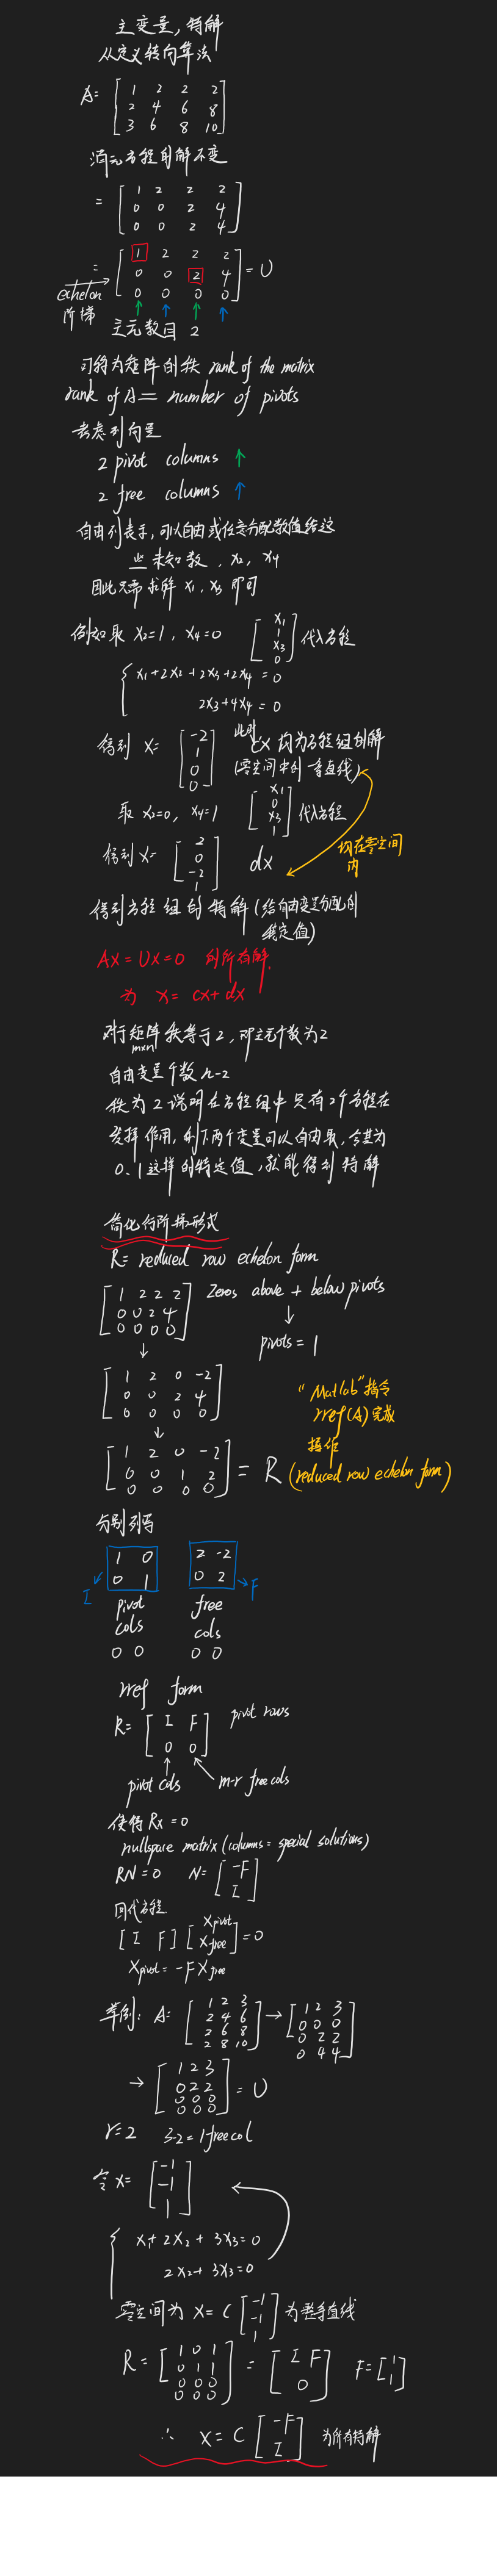 主变量，特解
从定义转向算法
A= [1 2 2 2
2 4 6 8
3 6 8 10]
消元方程的解不变
= [1 2 2 2
0 0 2 4
0 0 2 4]
= [1 2 2 2
0 0 2 4
0 0 0 0] = U
echelon
阶梯
主元数目 2
可称为矩阵的秩 rank of the matrix
rank of A = number of pivots
考虑列向量
2 pivot columns ↑
2 free columns ↑
自由列表示，可以自由或任意分配数值给这
些未知数，x2，x4
因此只需求解 x1，x3 即可
例如取 x2=1，x4=0 [x1
1
x3
0] 代入方程
{ x1+2x2+2x3+2x4=0
2x3+4x4=0
得到 X= [-2
1
0
0] 此时 cx 均为方程组的解
(零空间中的一条直线)
取 x2=0，x4=1 [x1
0
x3
1] 代入方程
得到 X= [2
0
-2
1] dx
均在零空间
内
得到方程组的特解（给自由变量分配的
特定值）
AX=UX=0 的所有解
为 x=cx+dx
对于矩阵秩等于2，即主元个数为2
m×n
自由变量个数 n-2
秩为2说明在方程组中只有2个方程在
发挥作用，剩下两个变量可以自由取，令其为
0、1这样的特定值，就能得到特解
简化行阶梯形式
R= reduced row echelon form
[1 2 2 2
0 0 2 4
0 0 0 0] zeros above + below pivots
↓
pivots = 1
↓
[1 2 0 -2
0 0 2 4
0 0 0 0]
↓
[1 2 0 -2
0 0 1 2
0 0 0 0] = R
"Matlab"指令
rref(A)完成
操作
(reduced row echelon form)
分别列写
1 0 2 -2
0 1 0 2
I F
pivot free
cols cols
0 0 0 0
rref form
R= [I F
0 0] pivot rows
pivot cols m-r free cols
使得 Rx=0
nullspace matrix (columns = special solutions)
RN=0 N= [-F
I]
回代方程
[I F] [Xpivot
Xfree] =0
Xpivot = -F Xfree
举例: A= [1 2 3
2 4 6
2 6 8
2 8 10] → [1 2 3
0 0 0
0 2 2
0 4 4]
→ [1 2 3
0 2 2
0 0 0
0 0 0] = U
r=2 3-2=1 free col
令 X= [-1
-1
1]
{ x1+2x2+3x3=0
2x2+3x3=0
零空间为 X= C [-1
-1
1] 为一条直线
R= [1 0 1
0 1 1
0 0 0
0 0 0] = [I F
0] F= [1
1]
∴ X= C [-F
I] 为所有特解